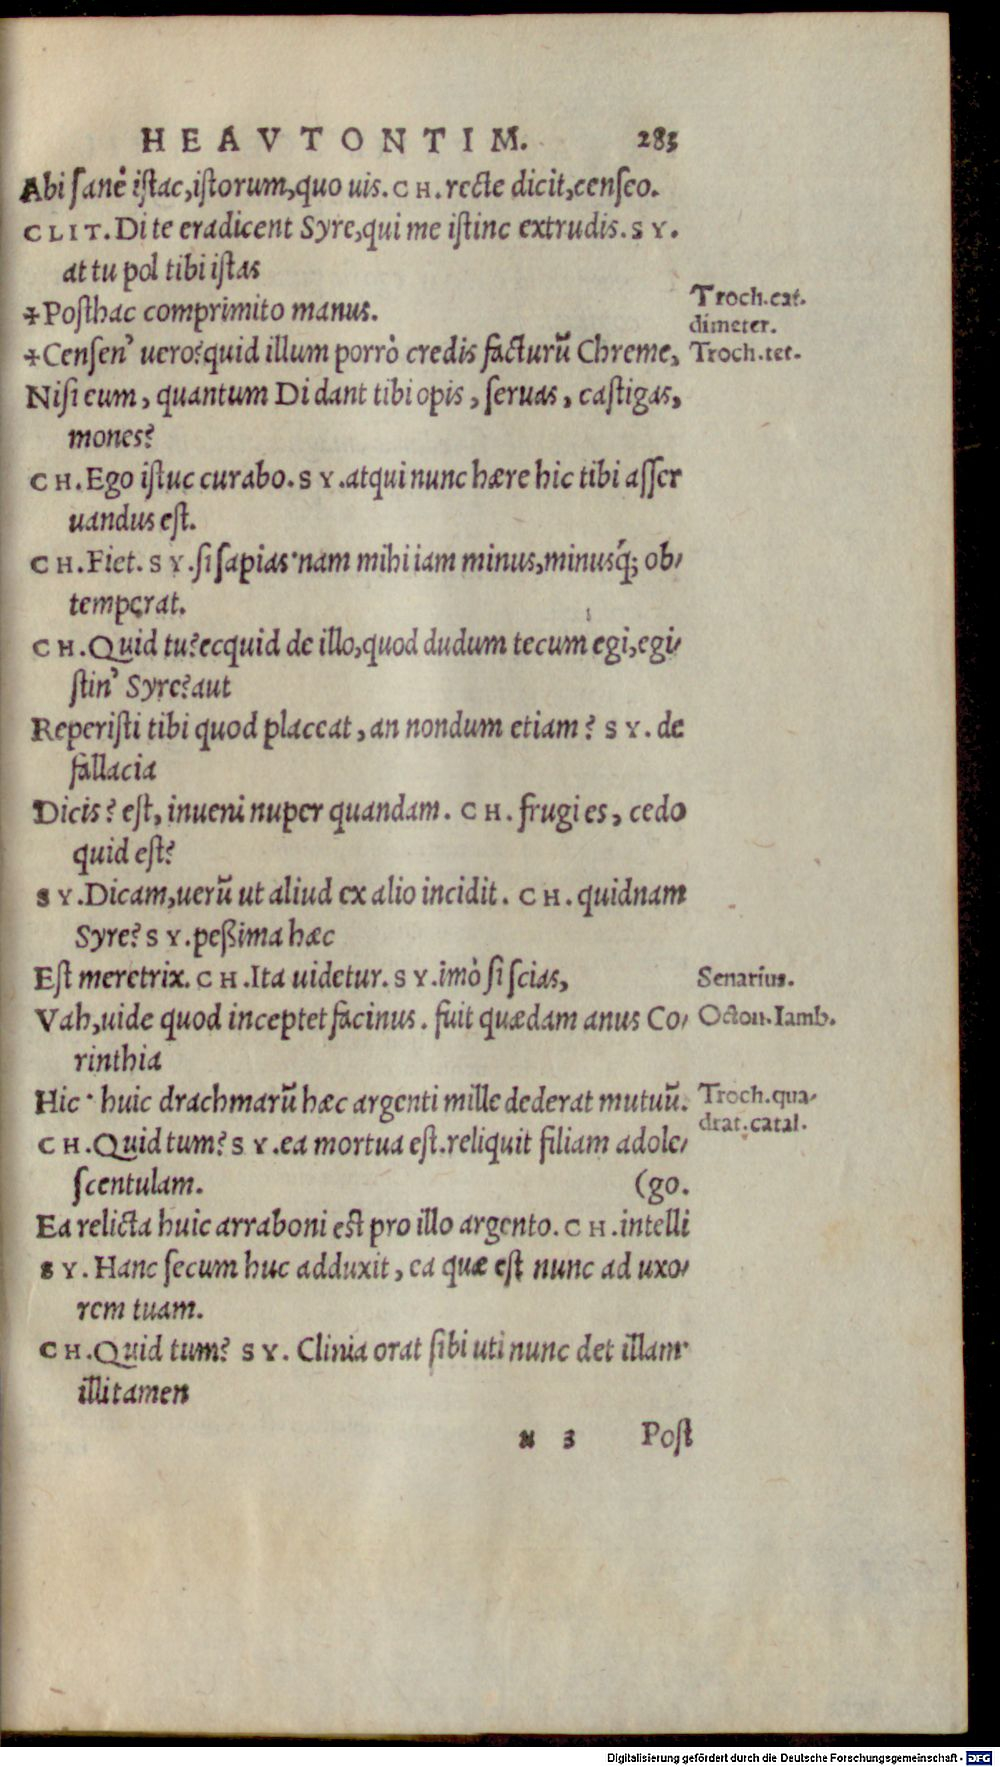 HEAVTONTIM. 283
Abi sanè istac, istorum, quo uis. CH. recte dicit, censeo.
CLIT. Di te eradicent Syre, qui me istinc extrudis. SY.
at tu pol tibi istas
✢Posthac comprimito manus.
Troch. cat.
dimeter.
✢Censen' uero? quid illum porrò credis facturũ Chreme,
Troch. tet.
Nisi eum, quantum Di dant tibi opis, seruas, castigas,
mones?
CH. Ego istuc curabo. SY. atqui nunc hære hic tibi asser
uandus est.
CH. Fiet. SY. si sapias· nam mihi iam minus, minusq́; ob-
temperat.
CH. Quid tu? ecquid de illo, quod dudum tecum egi, egi-
stin' Syre? aut
Reperisti tibi quod placeat, an nondum etiam? SY. de
fallacia
Dicis? est, inueni nuper quandam. CH. frugi es, cedo
quid est?
SY. Dicam, uerũ ut aliud ex alio incidit. CH. quidnam
Syre? SY. peßima hæc
Est meretrix. CH. Ita uidetur. SY. imò si scias,
Senarius.
Vah, uide quod inceptet facinus. fuit quædam anus Co-
Octon. Iamb.
rinthia
Hic· huic drachmarũ hæc argenti mille dederat mutuũ.
Troch. qua-
drat. catal.
CH. Quid tum? SY. ea mortua est. reliquit filiam adole-
scentulam. (go.
Ea relicta huic arraboni est pro illo argento. CH. intelli
SY. Hanc secum huc adduxit, ea quæ est nunc ad uxo-
rem tuam.
CH. Quid tum? SY. Clinia orat sibi uti nunc det illam·
illi tamen
n 3 Post
Digitalisierung gefördert durch die Deutsche Forschungsgemeinschaft - DFG